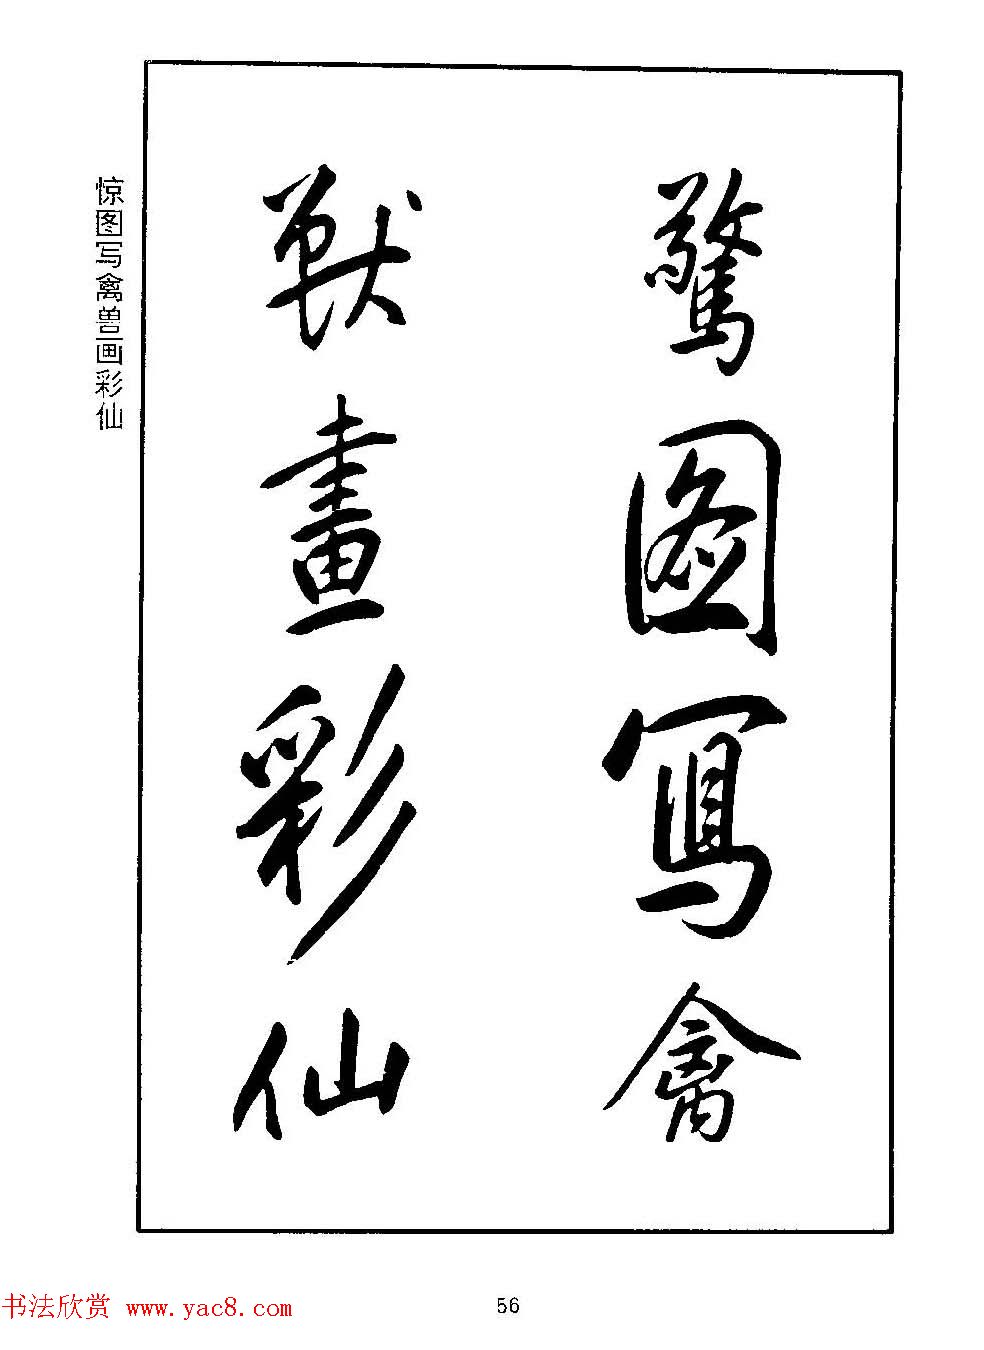 驚圖寫禽
獸畫彩仙
惊图写禽兽画彩仙
书法欣赏 www.yac8.com
56